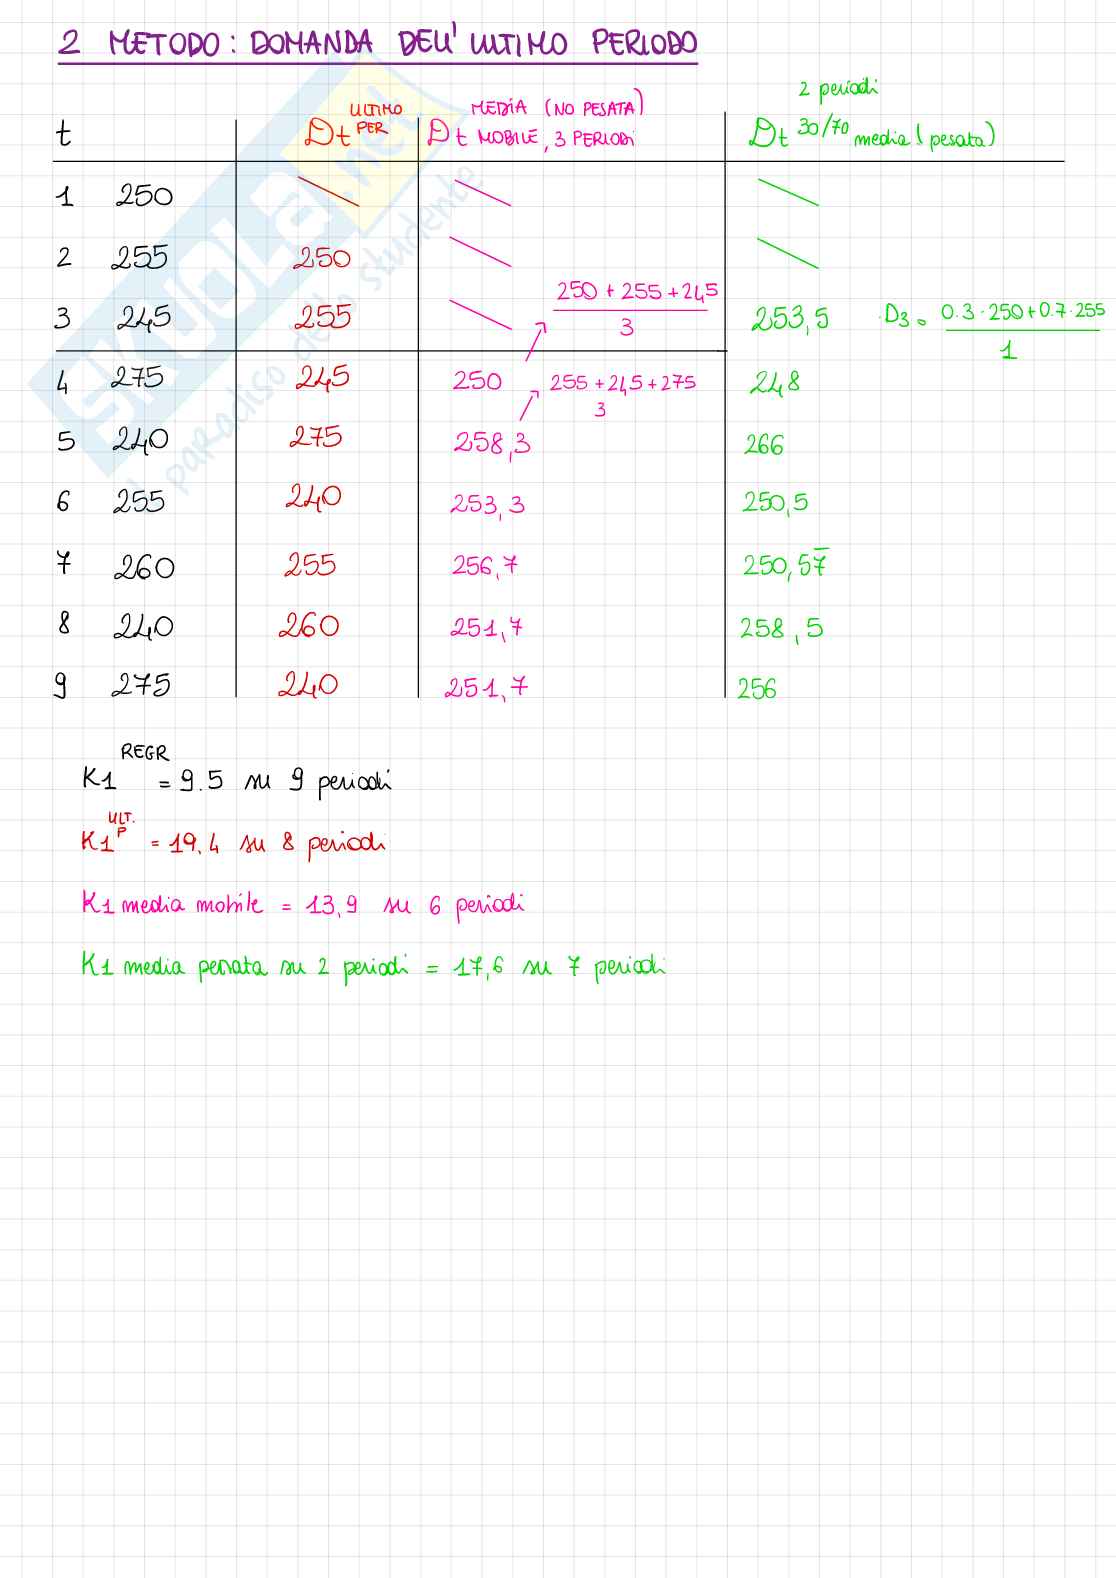 2 METODO: DOMANDA DELL' ULTIMO PERIODO
t Dt ULTIMO PER Dt MEDIA (NO PESATA) MOBILE, 3 PERIODI Dt 30/70 2 periodi media (pesata)
1 250
2 255 250
3 245 255 250 + 255 + 245 / 3 253,5 D3 = 0.3 · 250 + 0.7 · 255 / 1
4 275 245 250 255 + 245 + 275 / 3 248
5 240 275 258,3 266
6 255 240 253,3 250,5
7 260 255 256,7 250,57̅
8 240 260 251,7 258,5
9 275 240 251,7 256
K1 REGR = 9.5 su 9 periodi
K1 ULT. P = 19,4 su 8 periodi
K1 media mobile = 13,9 su 6 periodi
K1 media pesata su 2 periodi = 17,6 su 7 periodi
SKUOLA.net
il paradiso dello studente